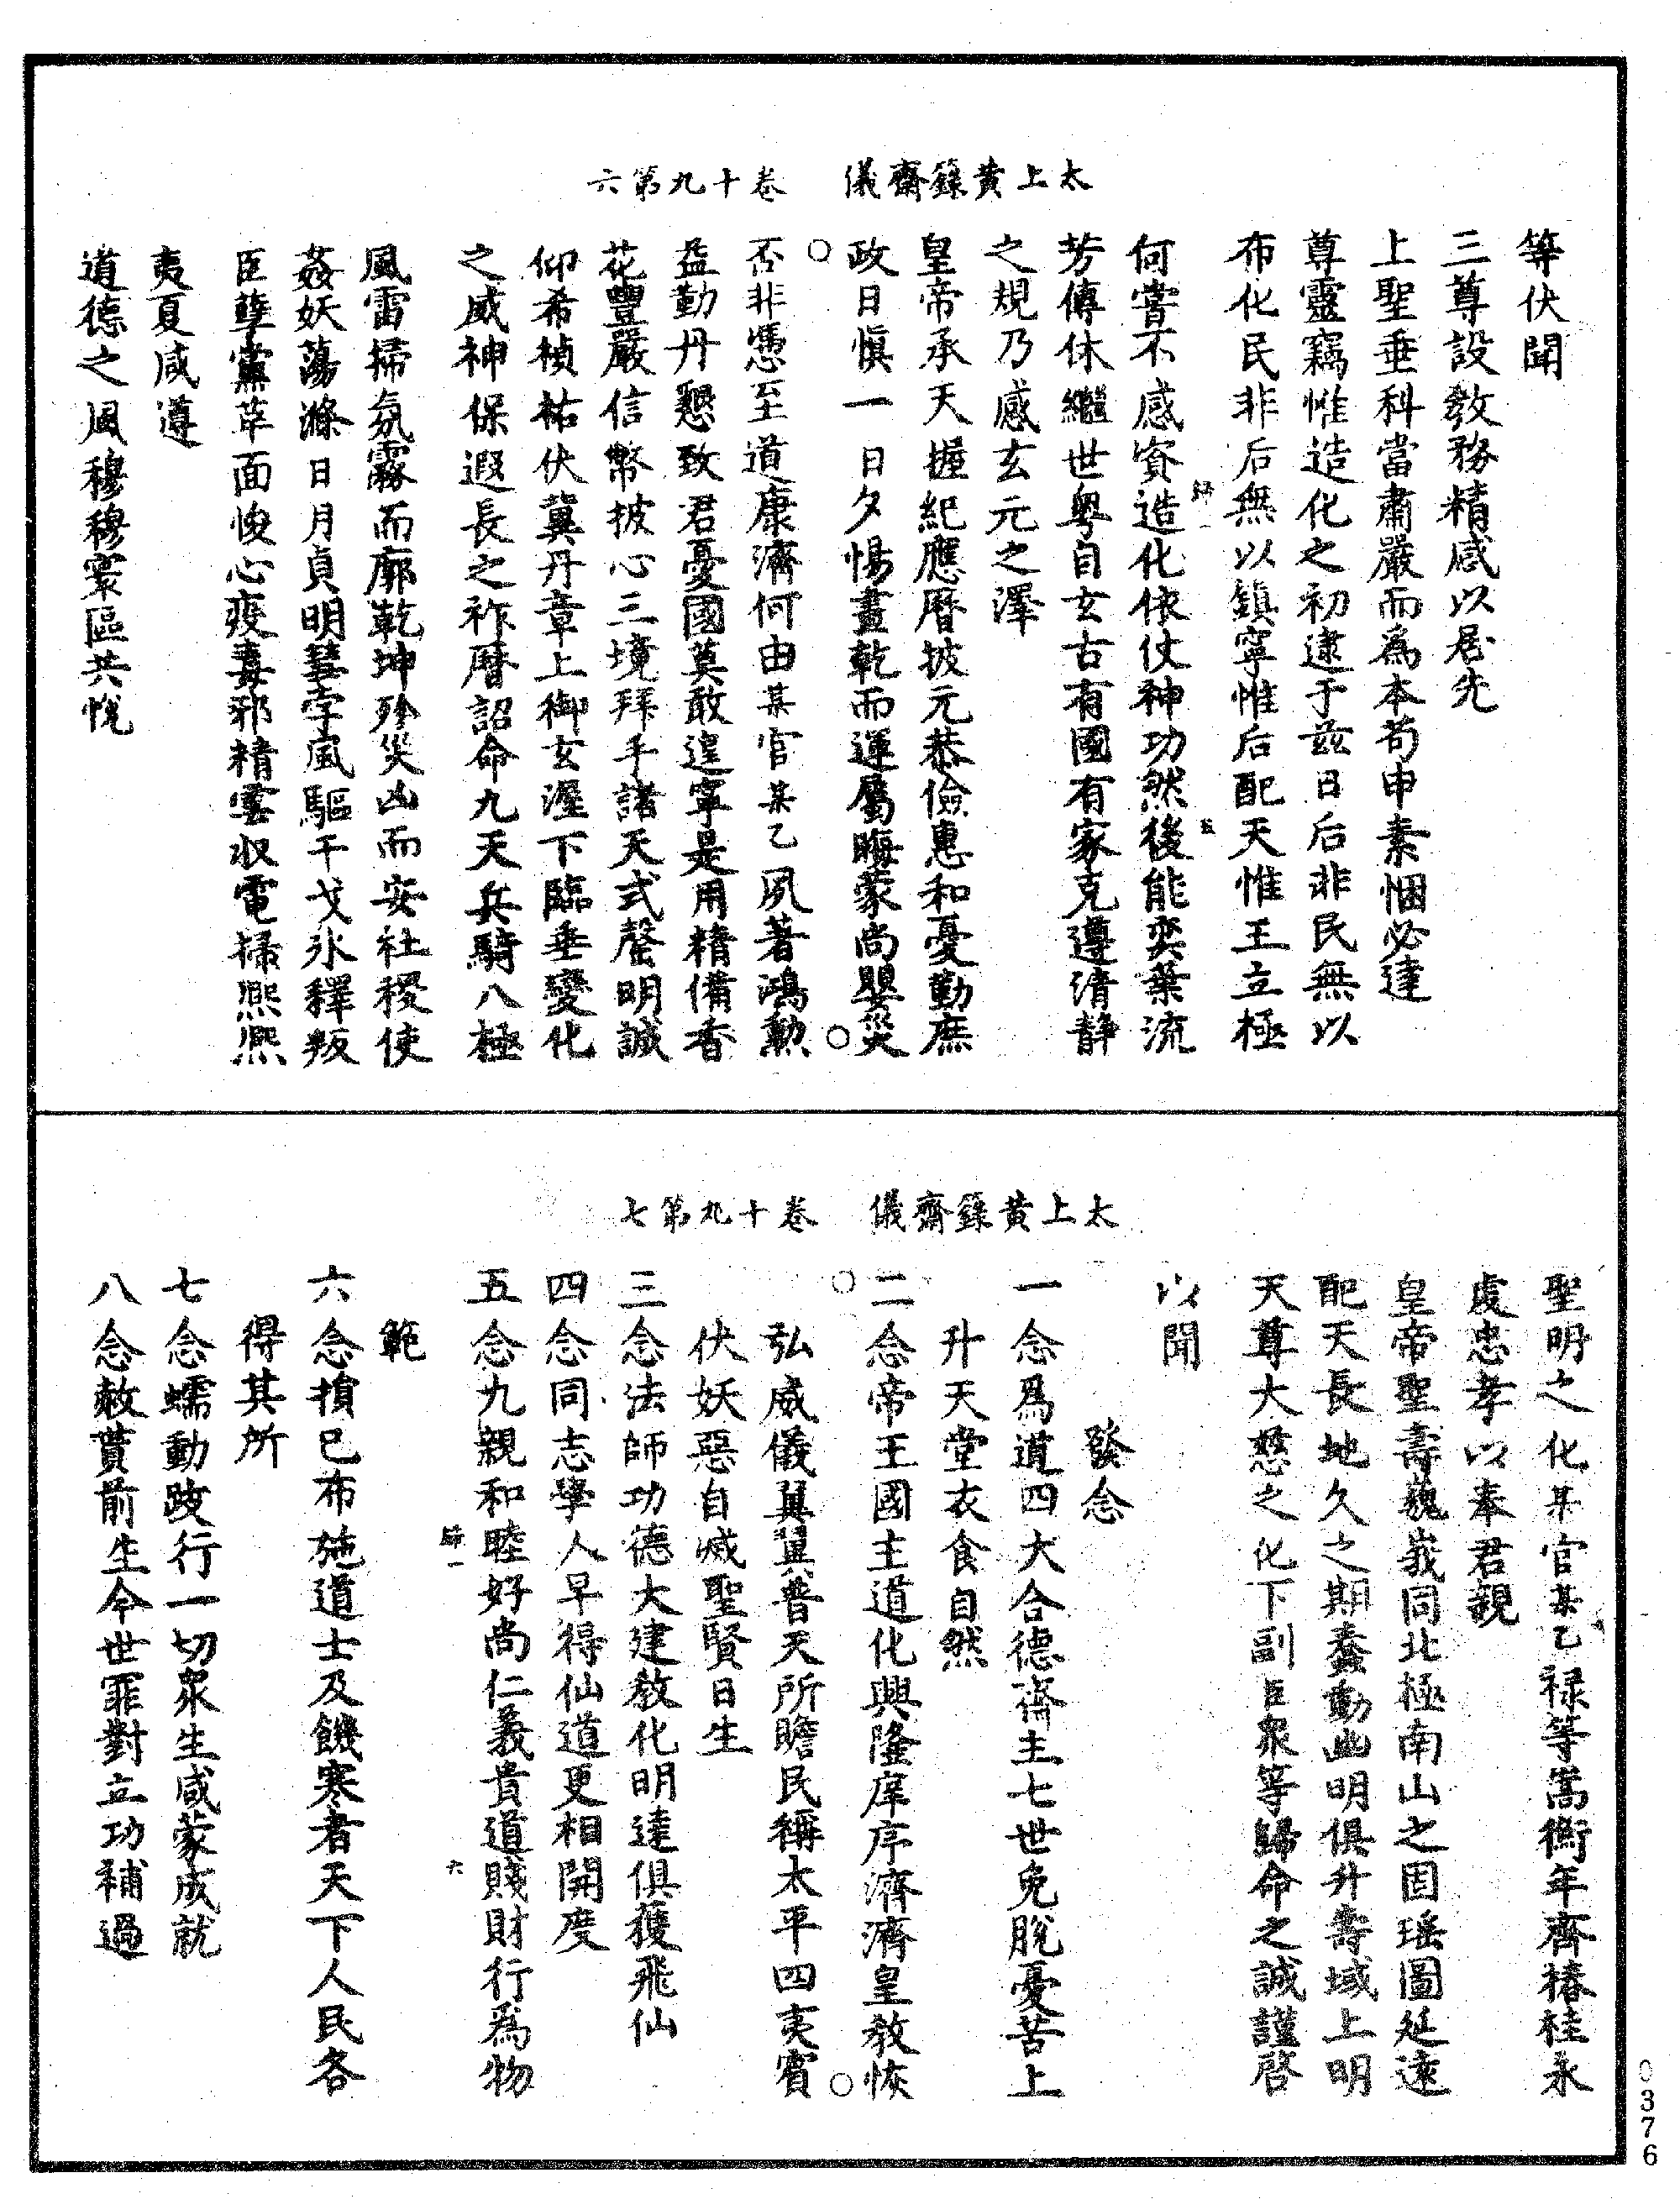 太上黃籙齋儀　卷十九第六
等伏聞
三尊設教務精感以居先
上聖垂科當肅嚴而為本苟申素悃必達
尊靈竊惟造化之初逮于茲日后非民無以
布化民非后無以鎮寧惟后配天惟王立極
何嘗不感資造化依仗神功然後能奕葉流
芳傳休繼世粵自玄古有國有家克遵清静
之規乃感玄元之澤
皇帝承天握紀應曆披元恭儉惠和憂勤庶
政日慎一日夕惕晝乾而運屬晦蒙尚嬰災
否非憑至道康濟何由某官某乙夙著鴻勲
益勤丹懇致君憂國莫敢遑寧是用精備香
花豐嚴信幣披心三境拜手諸天式罄明誠
仰希禎祐伏冀丹章上御玄渥下臨垂變化
之威神保遐長之祚曆詔命九天兵騎八極
風雷掃氛霧而廓乾坤殄災凶而安社稷使
姦妖蕩滌日月貞明彗孛風驅干戈氷釋叛
臣孽黨革面悛心疫毒邪精雲收電掃熈熈
夷夏咸遵
道德之風穆穆寰區共悅
太上黃籙齋儀　卷十九第七
聖明之化某官某乙禄等嵩衡年齊椿桂永
處忠孝以奉君親
皇帝聖壽巍峩同北極南山之固瑶圖延遠
配天長地久之期蠢動幽明俱升壽域上明
天尊大慈之化下副臣衆等歸命之誠謹啓
以聞
發念
一念爲道四大合德齋主七世免脫憂苦上
升天堂衣食自然
二念帝王國主道化興隆庠序濟濟皇教恢
弘威儀翼翼普天所瞻民稱太平四夷賓
伏妖惡自滅聖賢日生
三念法師功德大建教化明達俱獲飛仙
四念同志學人早得仙道更相開度
五念九親和睦好尚仁義貴道賤財行爲物
範
六念損己布施道士及饑寒者天下人民各
得其所
七念蠕動跂行一切衆生咸蒙成就
八念赦貰前生今世罪對立功補過
歸一
六
0376